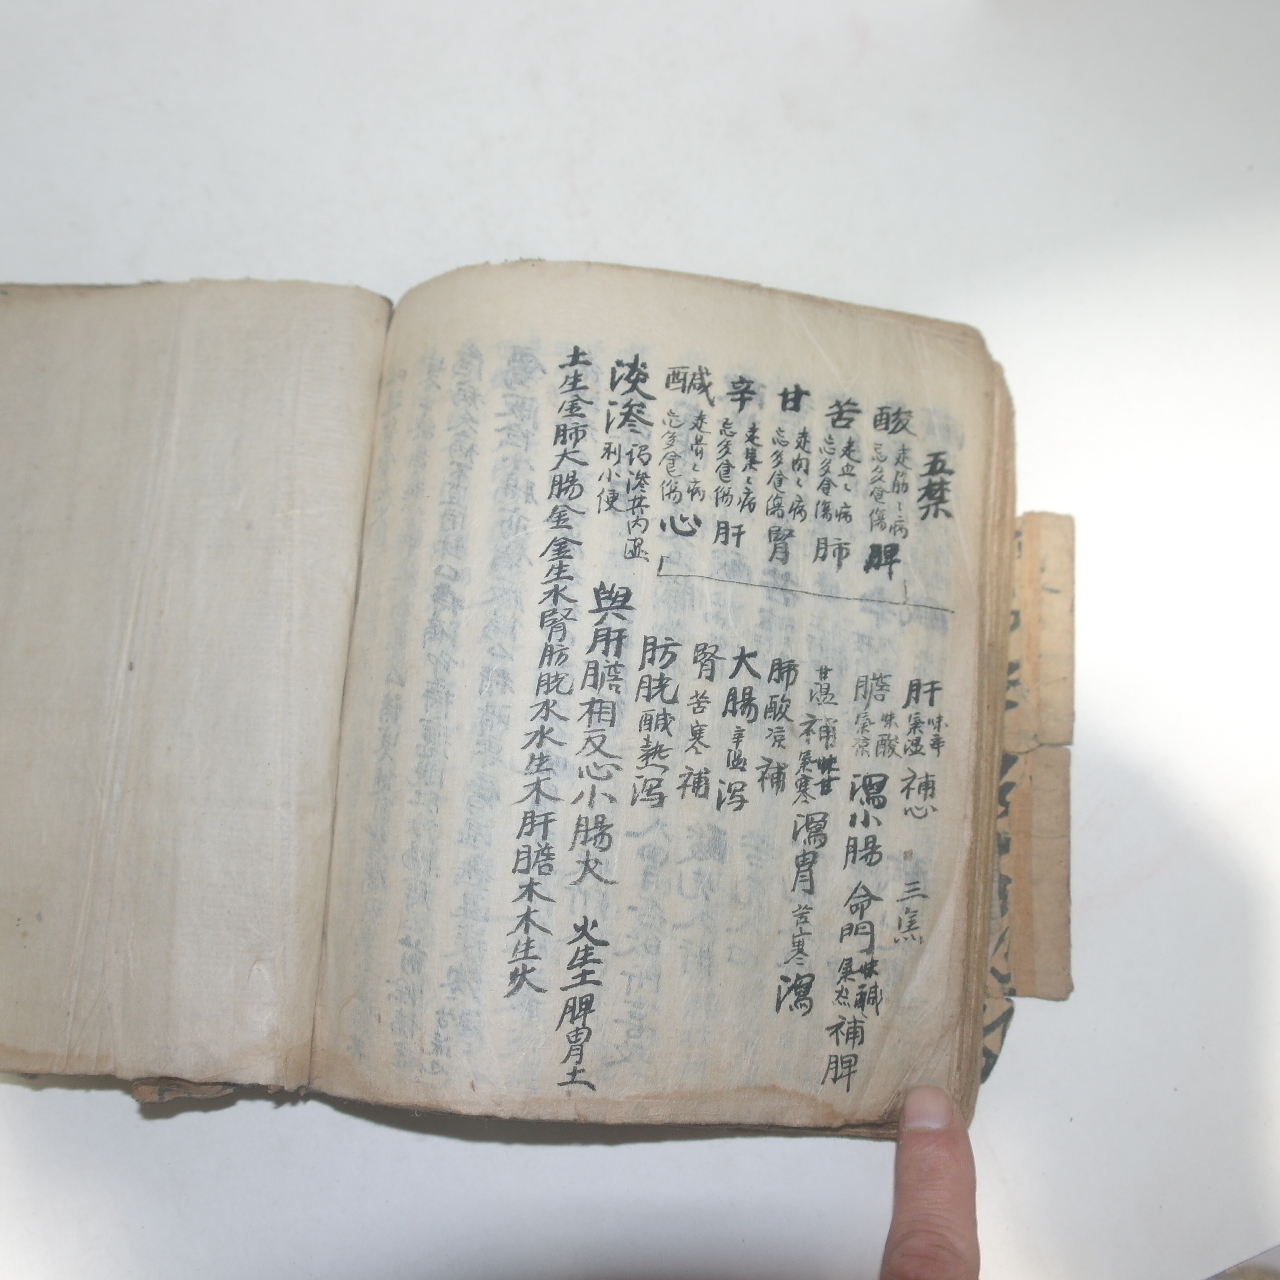 五禁
酸 走筋〻病 忌多食傷 脾
苦 走血〻病 忌多食傷 肺
甘 走肉〻病 忌多食傷 腎
辛 走氣〻病 忌多食傷 肝
醎 走骨〻病 忌多食傷 心
淡滲 謂滲其內濕 利小便
肝 味辛氣溫 補心 三焦
膽 味酸氣凉 瀉小腸 命門 味醎氣熱 補脾
甘溫 補 味甘氣寒 瀉胃 苦寒 瀉
肺 酸凉 補
大腸 辛溫 泻
腎 苦寒 補
肪胱 醎熱 泻
與肝膽相反心小腸火 火生土脾胃土
土生金肺大腸金金生水腎肪胱水水生木肝膽木木生火